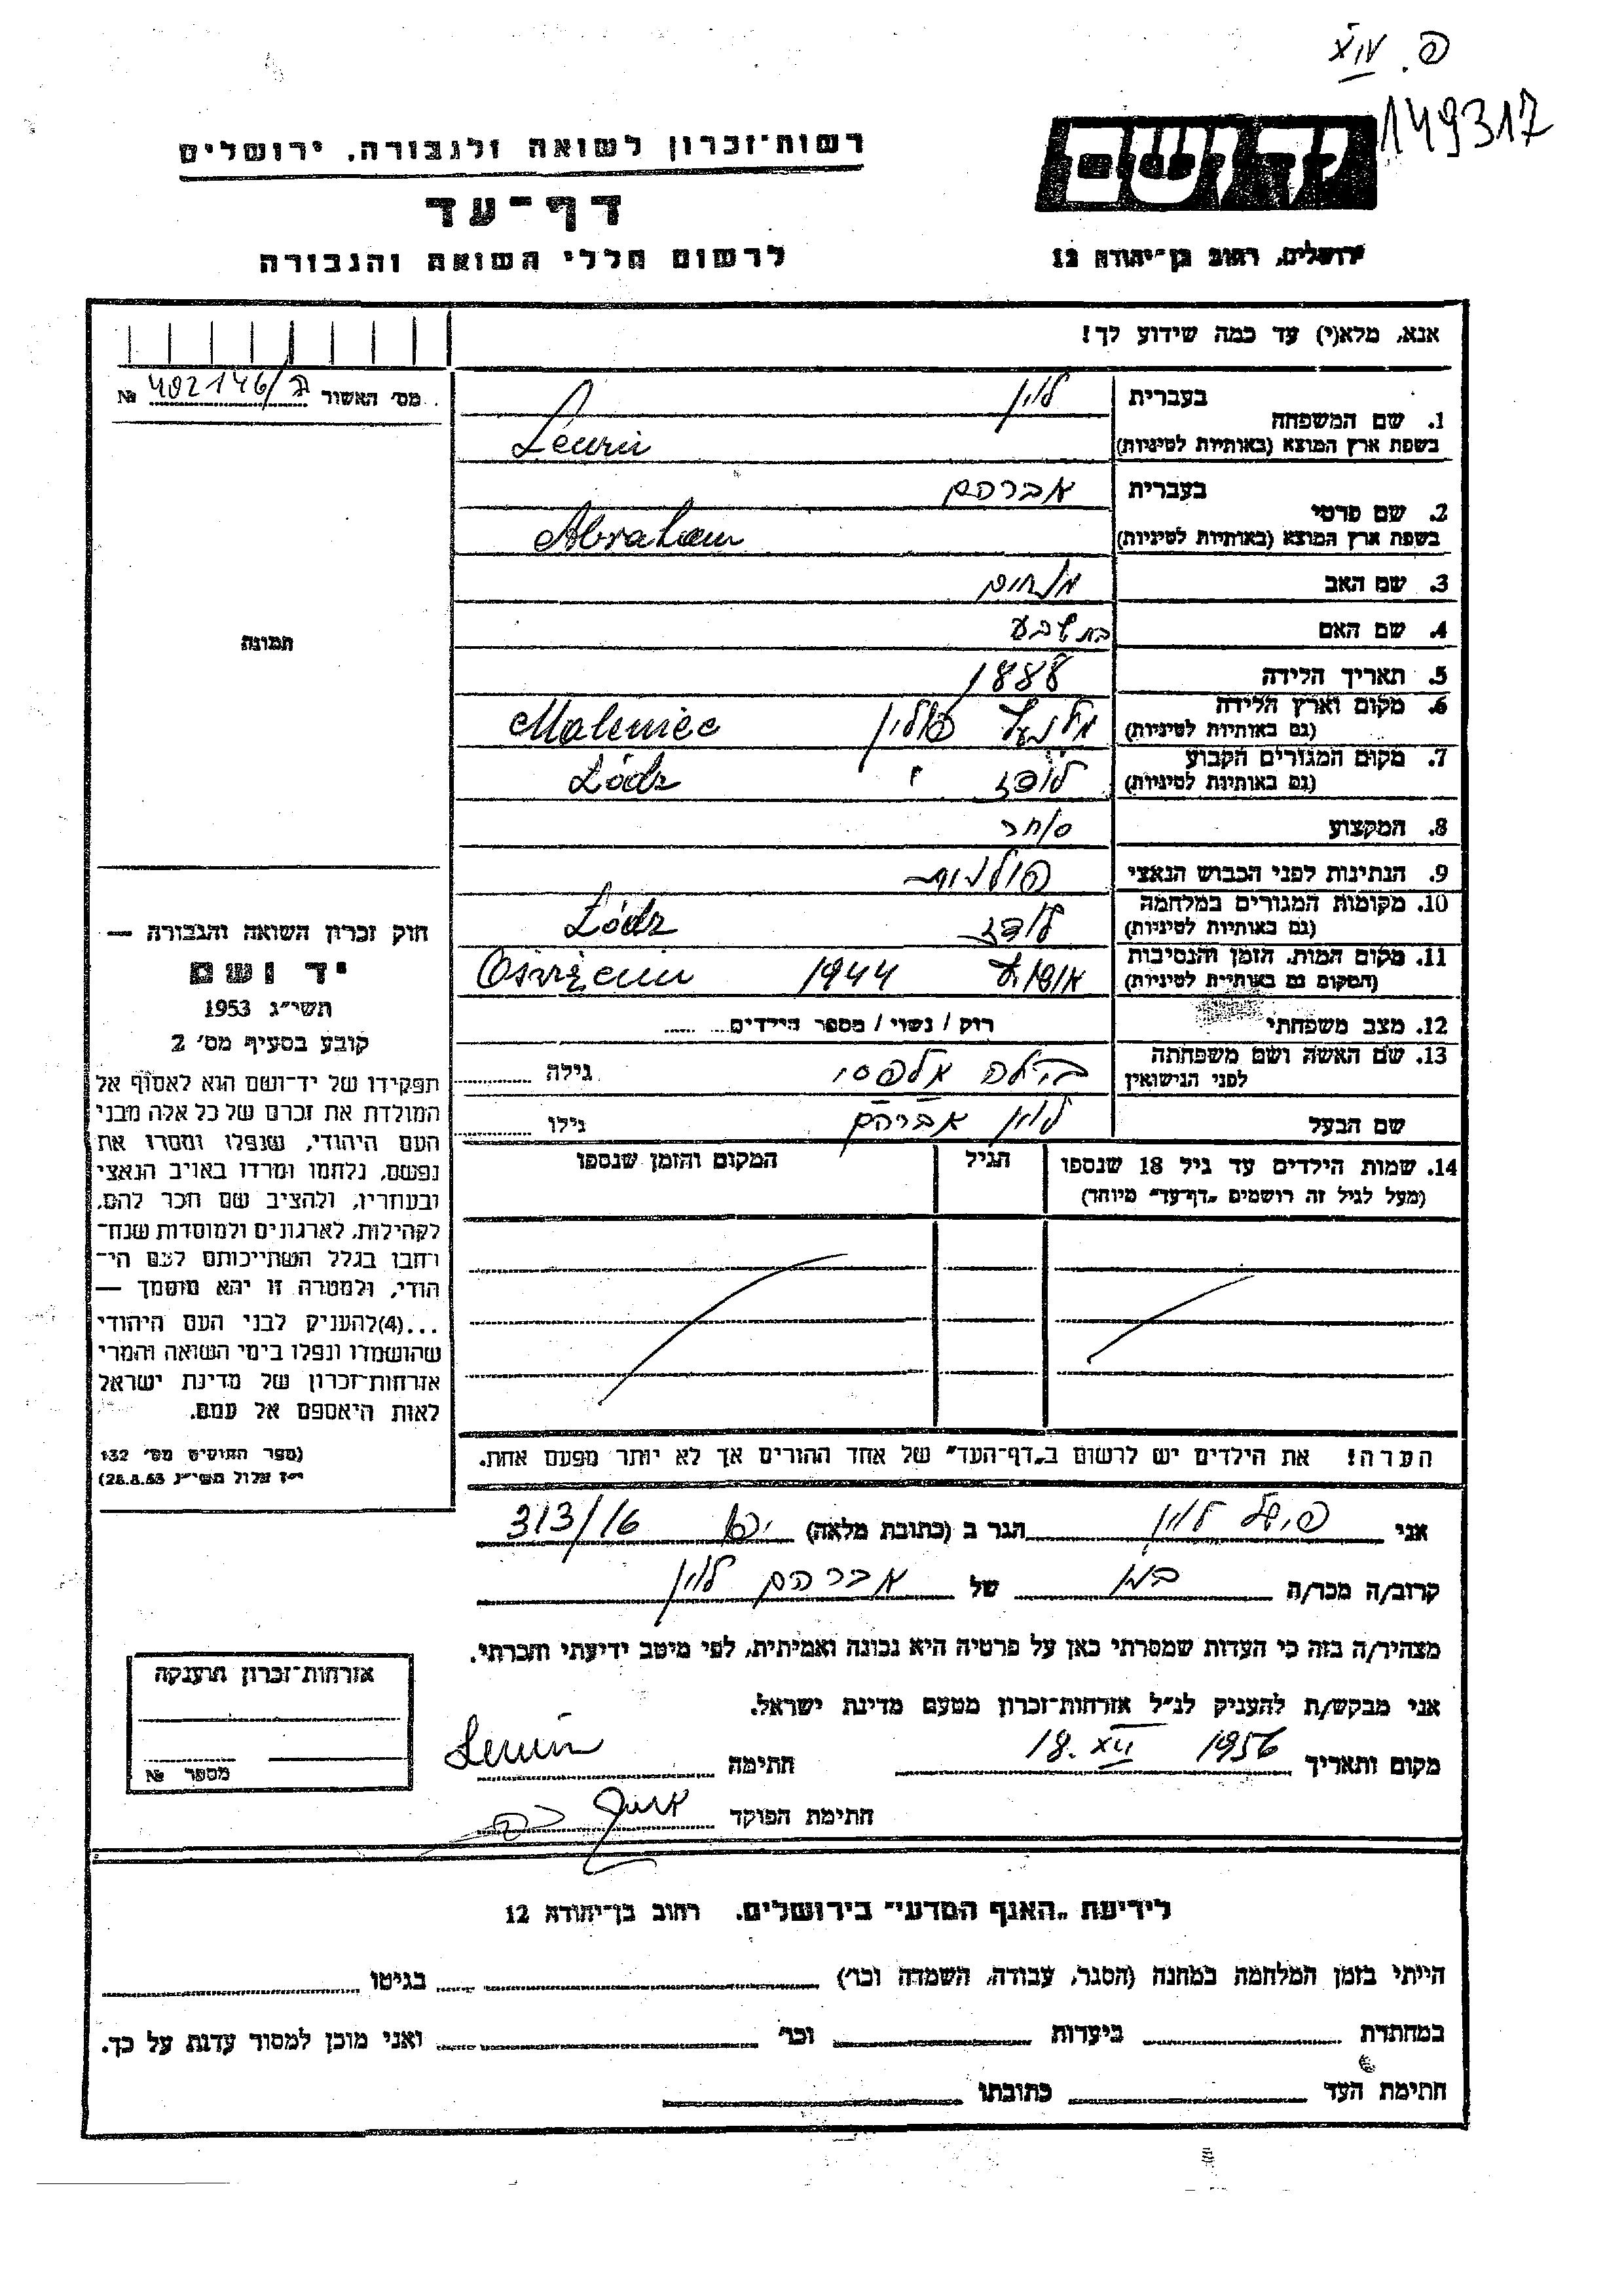 פ. XIV
149317
יד ושם
רשות־זכרון לשואה ולגבורה, ירושלים
דף־עד
לרשום חללי השואה והגבורה
ירושלים, רחוב בן־יהודה 12
אנא, מלא(י) עד כמה שידוע לך!
מס׳ האשור № 402146/ה
1. שם המשפחה
בעברית לוין
בשפת ארץ המוצא (באותיות לטיניות) Lewin
2. שם פרטי
בעברית אברהם
בשפת ארץ המוצא (באותיות לטיניות) Abraham
3. שם האב
4. שם האם בת שבע
5. תאריך הלידה 1888
6. מקום וארץ הלידה
(גם באותיות לטיניות) פולין Maleniec
7. מקום המגורים הקבוע
(גם באותיות לטיניות) לודז Łódz
8. המקצוע סוחר
9. הנתינות לפני הכבוש הנאצי פולנית
10. מקומות המגורים במלחמה
(גם באותיות לטיניות) לודז Łódz
11. מקום המות, הזמן והנסיבות
(המקום גם באותיות לטיניות) 1944 Oświęcim
12. מצב משפחתי רוק / נשוי / מספר הילדים
13. שם האשה ושם משפחתה
לפני הנישואין בילה אלפסי גילה
שם הבעל לוין אברהם גילו
14. שמות הילדים עד גיל 18 שנספו
(מעל לגיל זה רושמים „דף־עד״ מיוחד)
הגיל
המקום והזמן שנספו
הערה! את הילדים יש לרשום ב„דף־העד״ של אחד ההורים אך לא יותר מפעם אחת.
תמונה
חוק זכרון השואה והגבורה —
יד ושם
תשי״ג 1953
קובע בסעיף מס׳ 2
תפקידו של יד־ושם הוא לאסוף אל
המולדת את זכרם של כל אלה מבני
העם היהודי, שנפלו ומסרו את
נפשם, נלחמו ומרדו באויב הנאצי
ובעוזריו, ולהציב שם וזכר להם,
לקהילות, לארגונים ולמוסדות שנח־
רחבו בגלל השתייכותם לעם הי־
הודי, ולמטרה זו יהא מוסמך —
...(4)להעניק לבני העם היהודי
שהושמדו ונפלו בימי השואה והמרי
אזרחות־זכרון של מדינת ישראל
לאות היאספם אל עמם.
(ספר החוקים מס׳ 132
י״ז אלול תשי״ג 28.8.53)
אני לוין הגר ב (כתובת מלאה) יפו 313/16
קרוב/ה מכר/ה בן של אברהם לוין
מצהיר/ה בזה כי העדות שמסרתי כאן על פרטיה היא נכונה ואמיתית, לפי מיטב ידיעתי והכרתי.
אני מבקש/ת להעניק לנ״ל אזרחות־זכרון מטעם מדינת ישראל.
מקום ותאריך 18. XII 1956 חתימה Lewin
חתימת הפוקד
אזרחות־זכרון הוענקה
מספר №
לידיעת „האגף המדעי״ בירושלים, רחוב בן־יהודה 12
הייתי בזמן המלחמה במחנה (הסגר, עבודה, השמדה וכו׳) בגיטו
במחתרת ביערות וכו׳ ואני מוכן למסור עדות על כך.
חתימת העד כתובתו